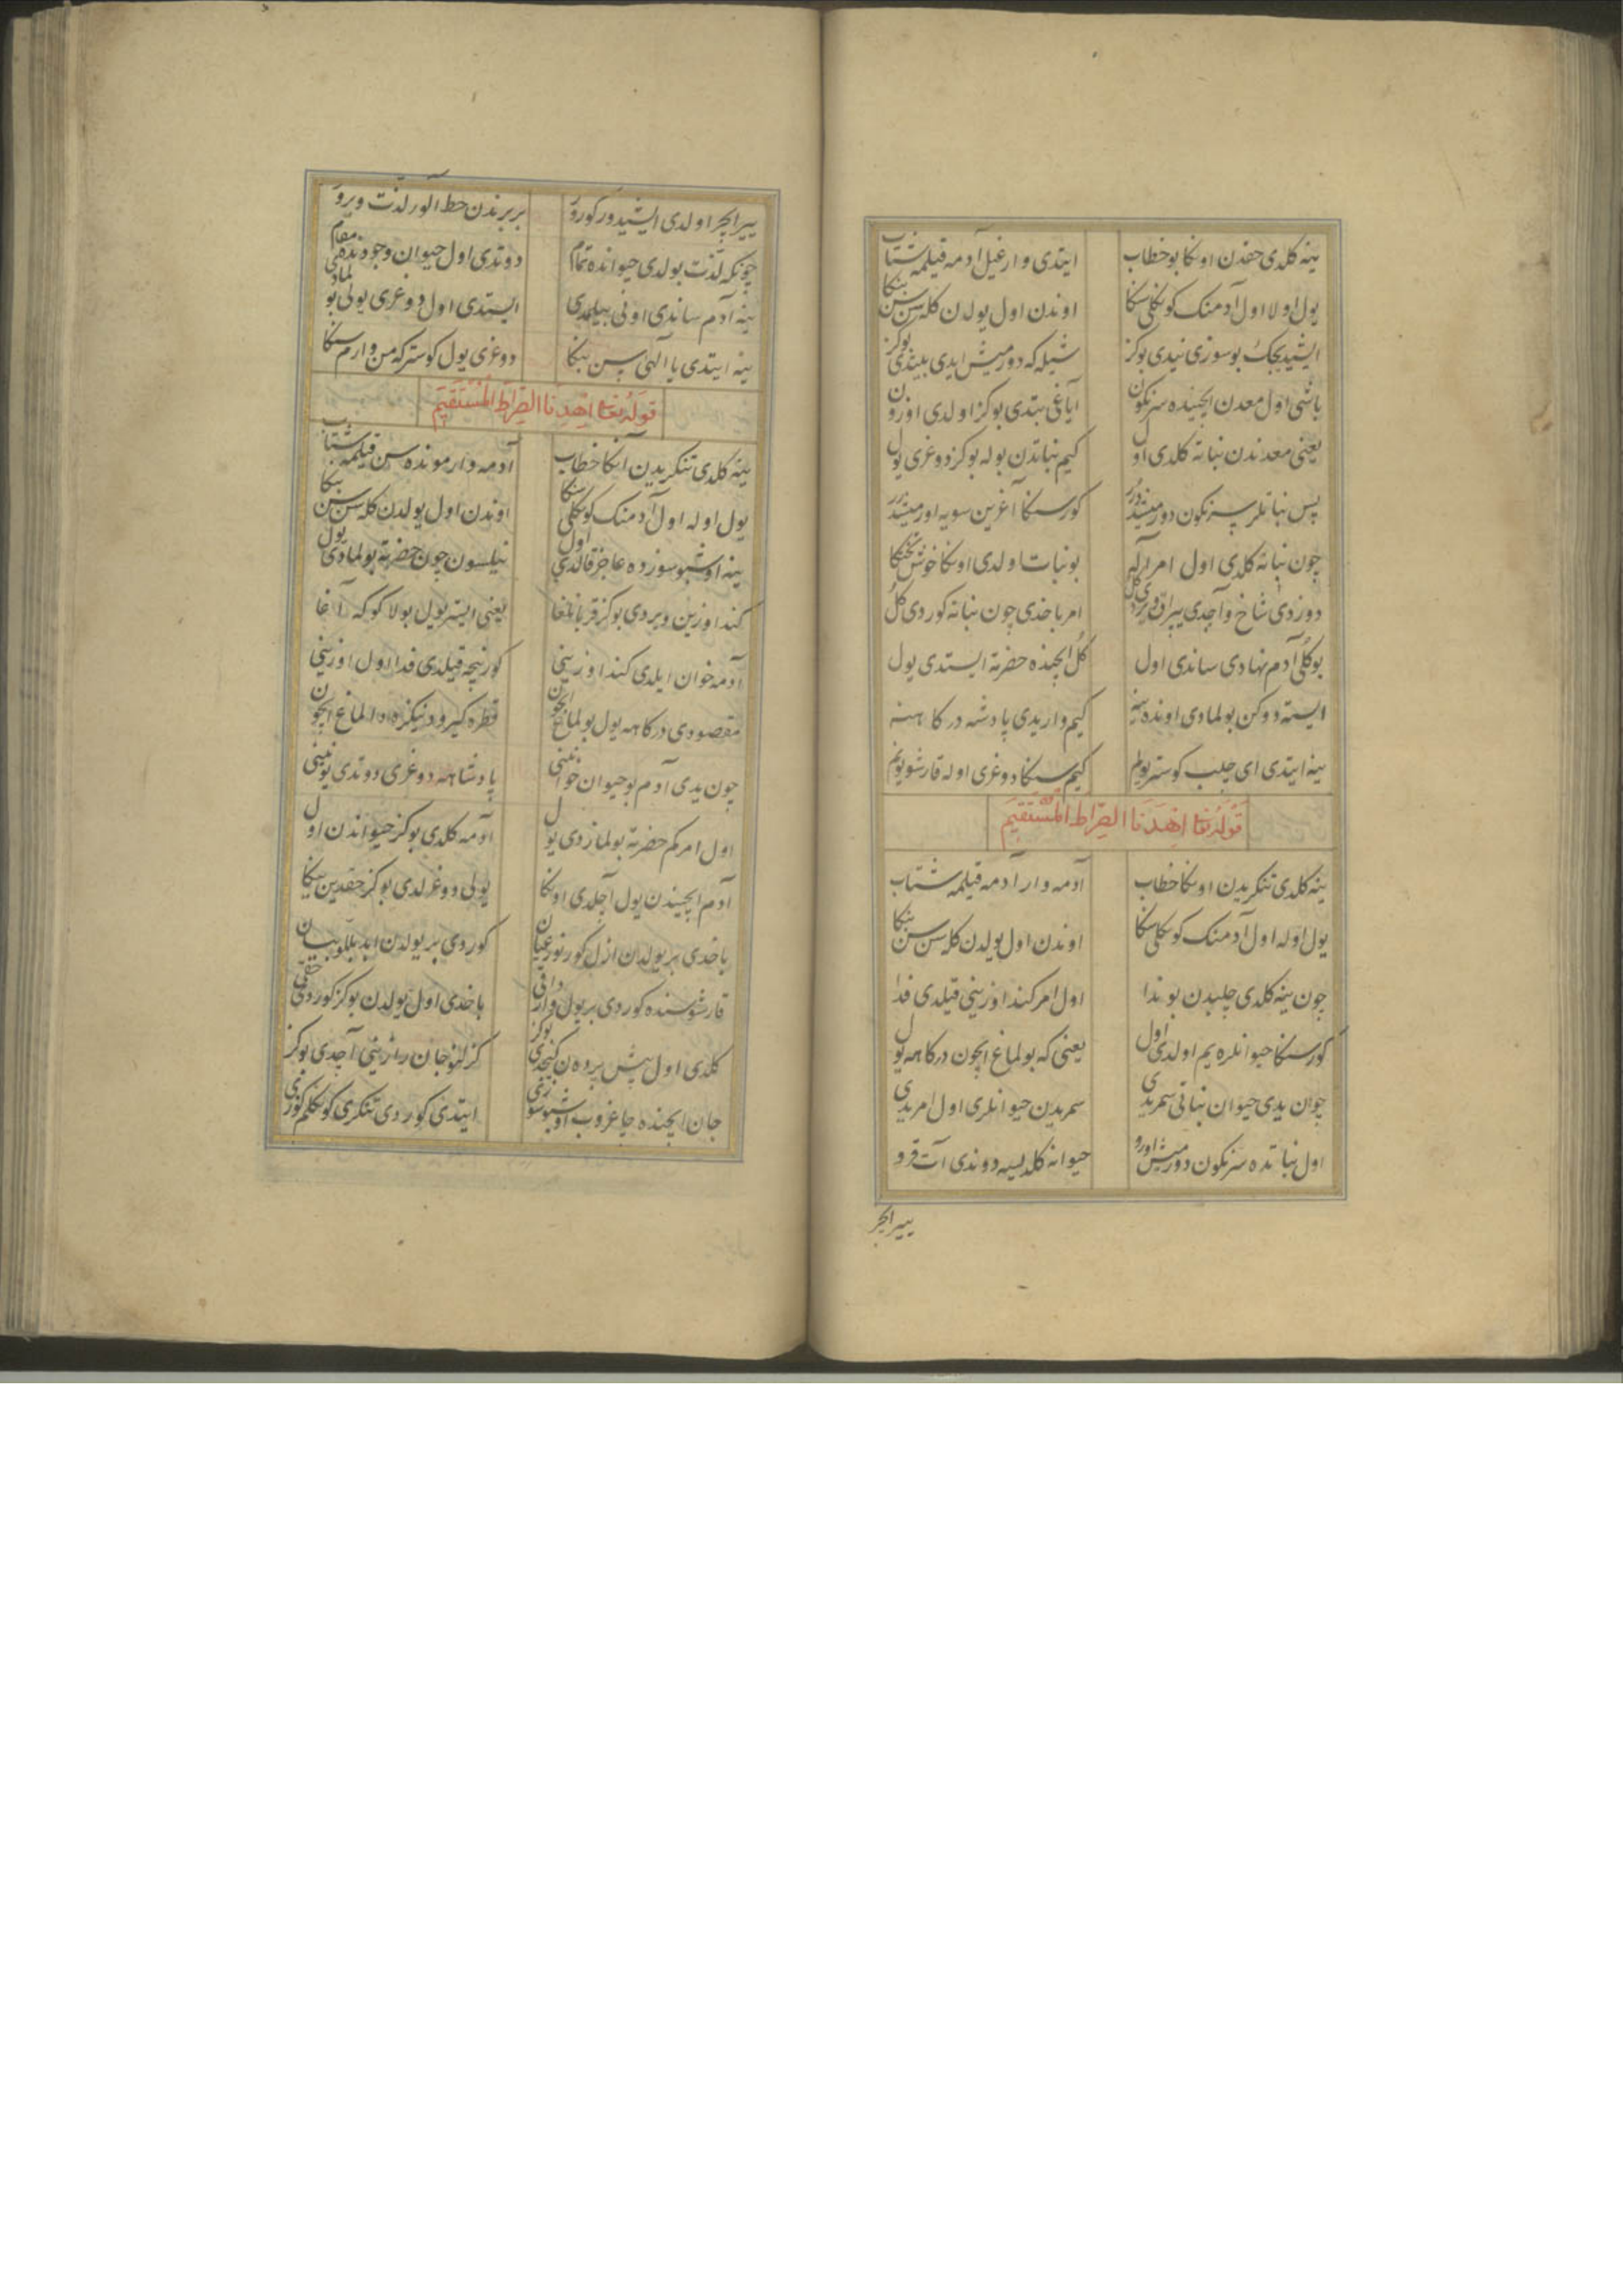 ینه کلدی حقدن اونکا بو خطاب ایتدی وارغیل آدمه قیلمه شتاب
یول اولا اول آدمنک کونکلی سنکا اوندن اول یولدن کله سن سن بنکا
ایشیدیجک بو سوزی نیدی بو کز شیله که دورمیش ایدی بو کز
باشی اول معدن ایچینده سرنکون ایاغی بتدی بو کز اولدی اوزون
یعنی معدندن نباته کلدی اول کیم نباتدن بوله بو کز دوغری یول
پس نباتلر سرنکون دورمیشدرر کورسنکا آغزین سویه اورمیشدرر
چون نباته کلدی اول امر اله بو نبات اولدی اونکا خوش تختکا
دوزدی شاخ و آچدی یپراق ویردی کل امر باخدی چون نباته کوردی کل
بو کلی آدم نهادی ساندی اول کل ایچنده حضرته ایستدی یول
ایسته دوکن بولمادی اونده ینه کیم واریدی پادشه درکاهنه
ینه ایتدی ای چلب کوستر یولم کیم سنکا دوغری اوله قارشو یولم
قوله تعا اهدنا الصراط المستقیم
ینه کلدی تنکریدن اونکا خطاب آدمه وار آدمه قیلمه شتاب
یول اوله اول آدمنک کونکلی سنکا اوندن اول یولدن کله سن سن بنکا
چون ینه کلدی چلبدن بو ندا اول امر کند اوزینی قیلدی فدا
کورسنکا حیوانلره یم اولدی اول یعنی که بولماغ ایچون درکاهه یول
چون یدی حیوان نباتی سمریدی سمریدن حیوانلری اول امریدی
اول نباتده سرنکون دورمیش اورو حیوانه کلدیسه دوندی آت قرو
ییر ایچر
ییر ایچر اولدی ایشیدور کورور بربرندن حظ آلور لذت ویرور
چونکه لذت بولدی حیوانده تمام دوتدی اول حیوان وجودنده مقام
ینه آدم ساندی اونی بیلمدی ایستدی اول دوغری یولی بولمادی
ینه ایتدی یا الهی سن بنکا دوغری یول کوستر که من وارم سنکا
قوله تعا اهدنا الصراط المستقیم
ینه کلدی تنکریدن آنکا خطاب آدمه وار مونده سن قیلمه شتاب
یول اوله اول آدمنک کونکلی سنکا اوندن اول یولدن کله سن سن بنکا
ینه اوشبو سوزده عاجز قالدی اول نیلسون چون حضرته بولمادی یول
کند اوزین ویردی بو کز قربانلغا یعنی ایستر یول بولا کوکه آغا
آدمه خوان ایلدی کند اوزینی کورنیجه قیلدی فدا اول اوزینی
مقصودی درکاهه یول بولماغ ایچون قطره کیرو دنیکزه اولماغ ایچون
چون یدی آدم بو حیوان خوانینی پادشاهه دوغری دوتدی یونینی
اول امر کم حضرته بولمازدی یول آدمه کلدی بو کز حیواندن اول
آدم ایچیندن یول آچلدی اونکا یولی دوغرلدی بو کز حقدین ینکا
باخدی بر یولدن ازل کورنور عیان کوردی بر یولدن ابد بللو بیان
قارشوسنده کوردی بر یول وار داقی باخدی اول یولدن بو کز کوردی حقی
کلدی اول پیش پرده‌ن کیچدی بو کز کزلنو جان رازینی آچدی بو کز
جان ایچنده چاغروب اوشبو سوزنی ایتدی کوردی تنکری کونکلم کوزنی